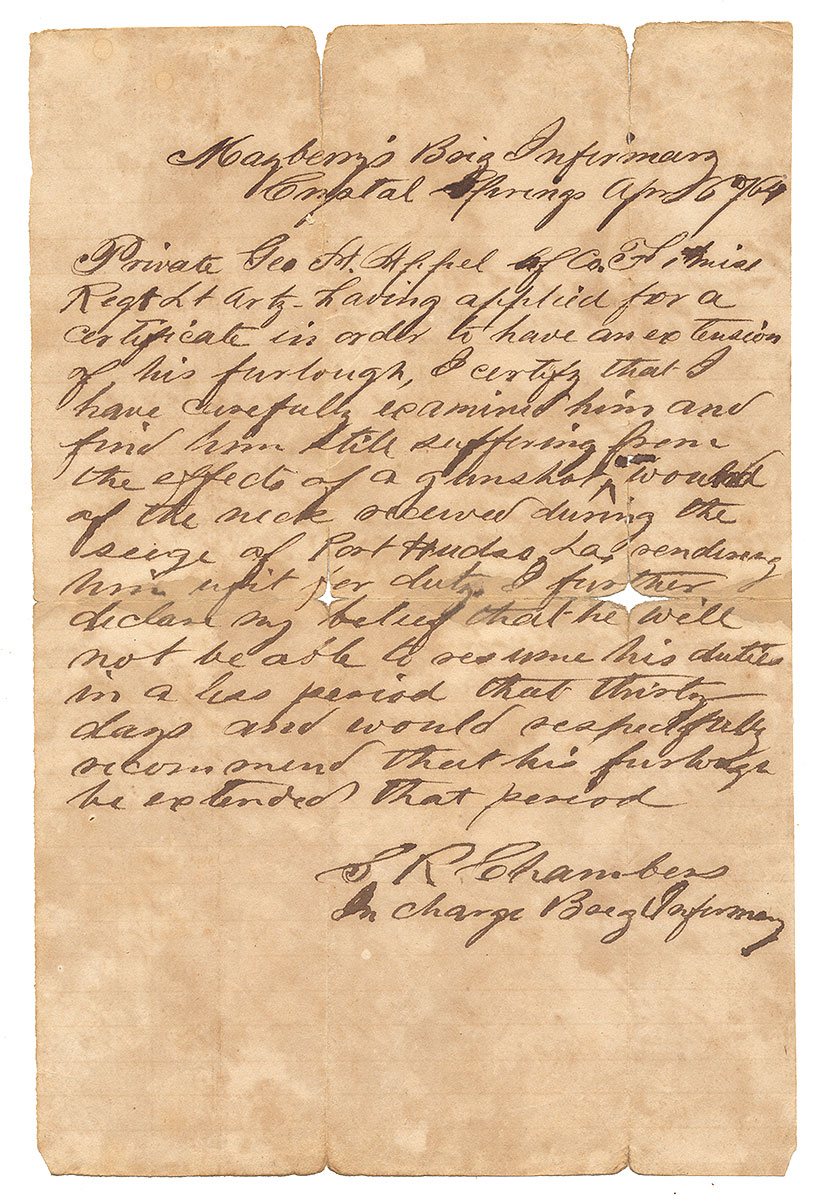 Mayberry's Brig Infirmary
Crystal Springs Apr 6th/64
Private Geo H. Appel of Co. F, 1 Miss
Regt Lt Arty having applied for a
certificate in order to have an extension
of his furlough, I certify that I
have carefully examined him and
find him still suffering from
the effects of a gunshot wound
of the neck received during the
seige of Port Hudso, La, rendering
him unfit for duty. I further
declare my belief that he will
not be able to resume his duties
in a less period that thirty
days and would respectfully
recommend that his furlough
be extended that period
S R Chambers
In charge Brig Infirmary